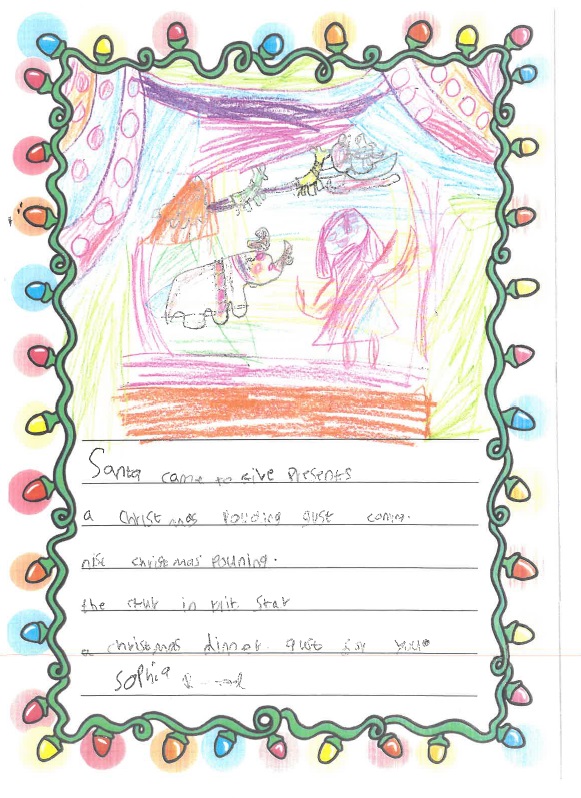 Santa came to give Presents
a christmas Pouding gust coming.
nise christmas Pouning.
the star in brit star
a christmas dinner. gust for you
Sophia